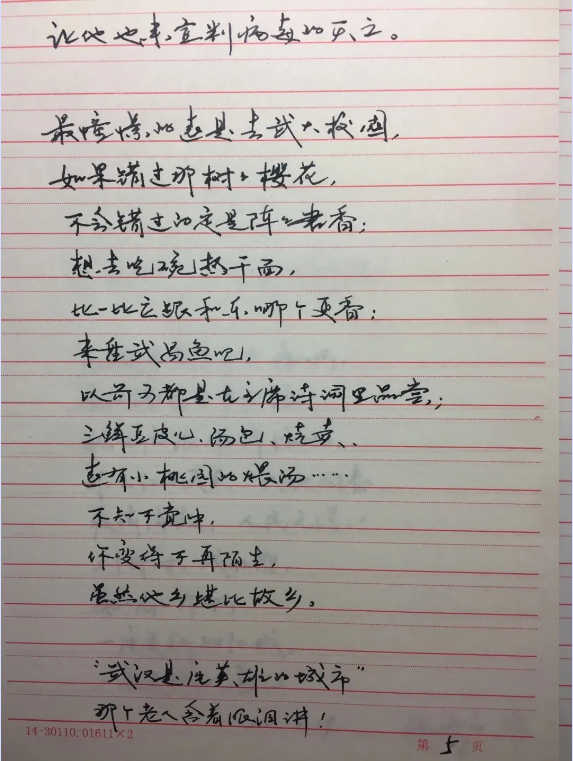 让他也来宣判病毒的灭亡。
最憧憬的还是去武大校园，
如果错过那树树樱花，
不会错过的定是阵阵书香；
想去吃碗热干面，
比一比它跟和乐哪个更香；
来难武昌鱼吧，
以前不都是在主席诗词里品尝；
三鲜豆皮儿、汤包、烧卖、
还有小桃园的煨汤……
不知不觉中，
你变得不再陌生，
虽然他乡堪比故乡。
“武汉是座英雄的城市”
那个老人含着眼泪讲！
14-30110.01611×2
第 5 页